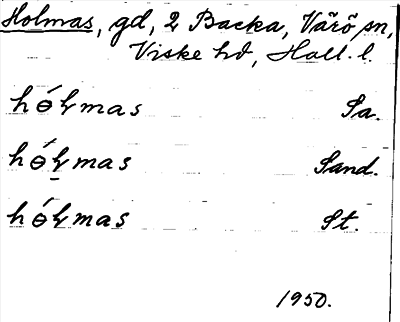 Holmas, gd, 2 Backa, Värö sn,
Viske hd, Hall. l.
hɵ́ɫmas Sa.
hɵ́ɫ̠mas Sand.
hɵ́ɫmas St.
1950.